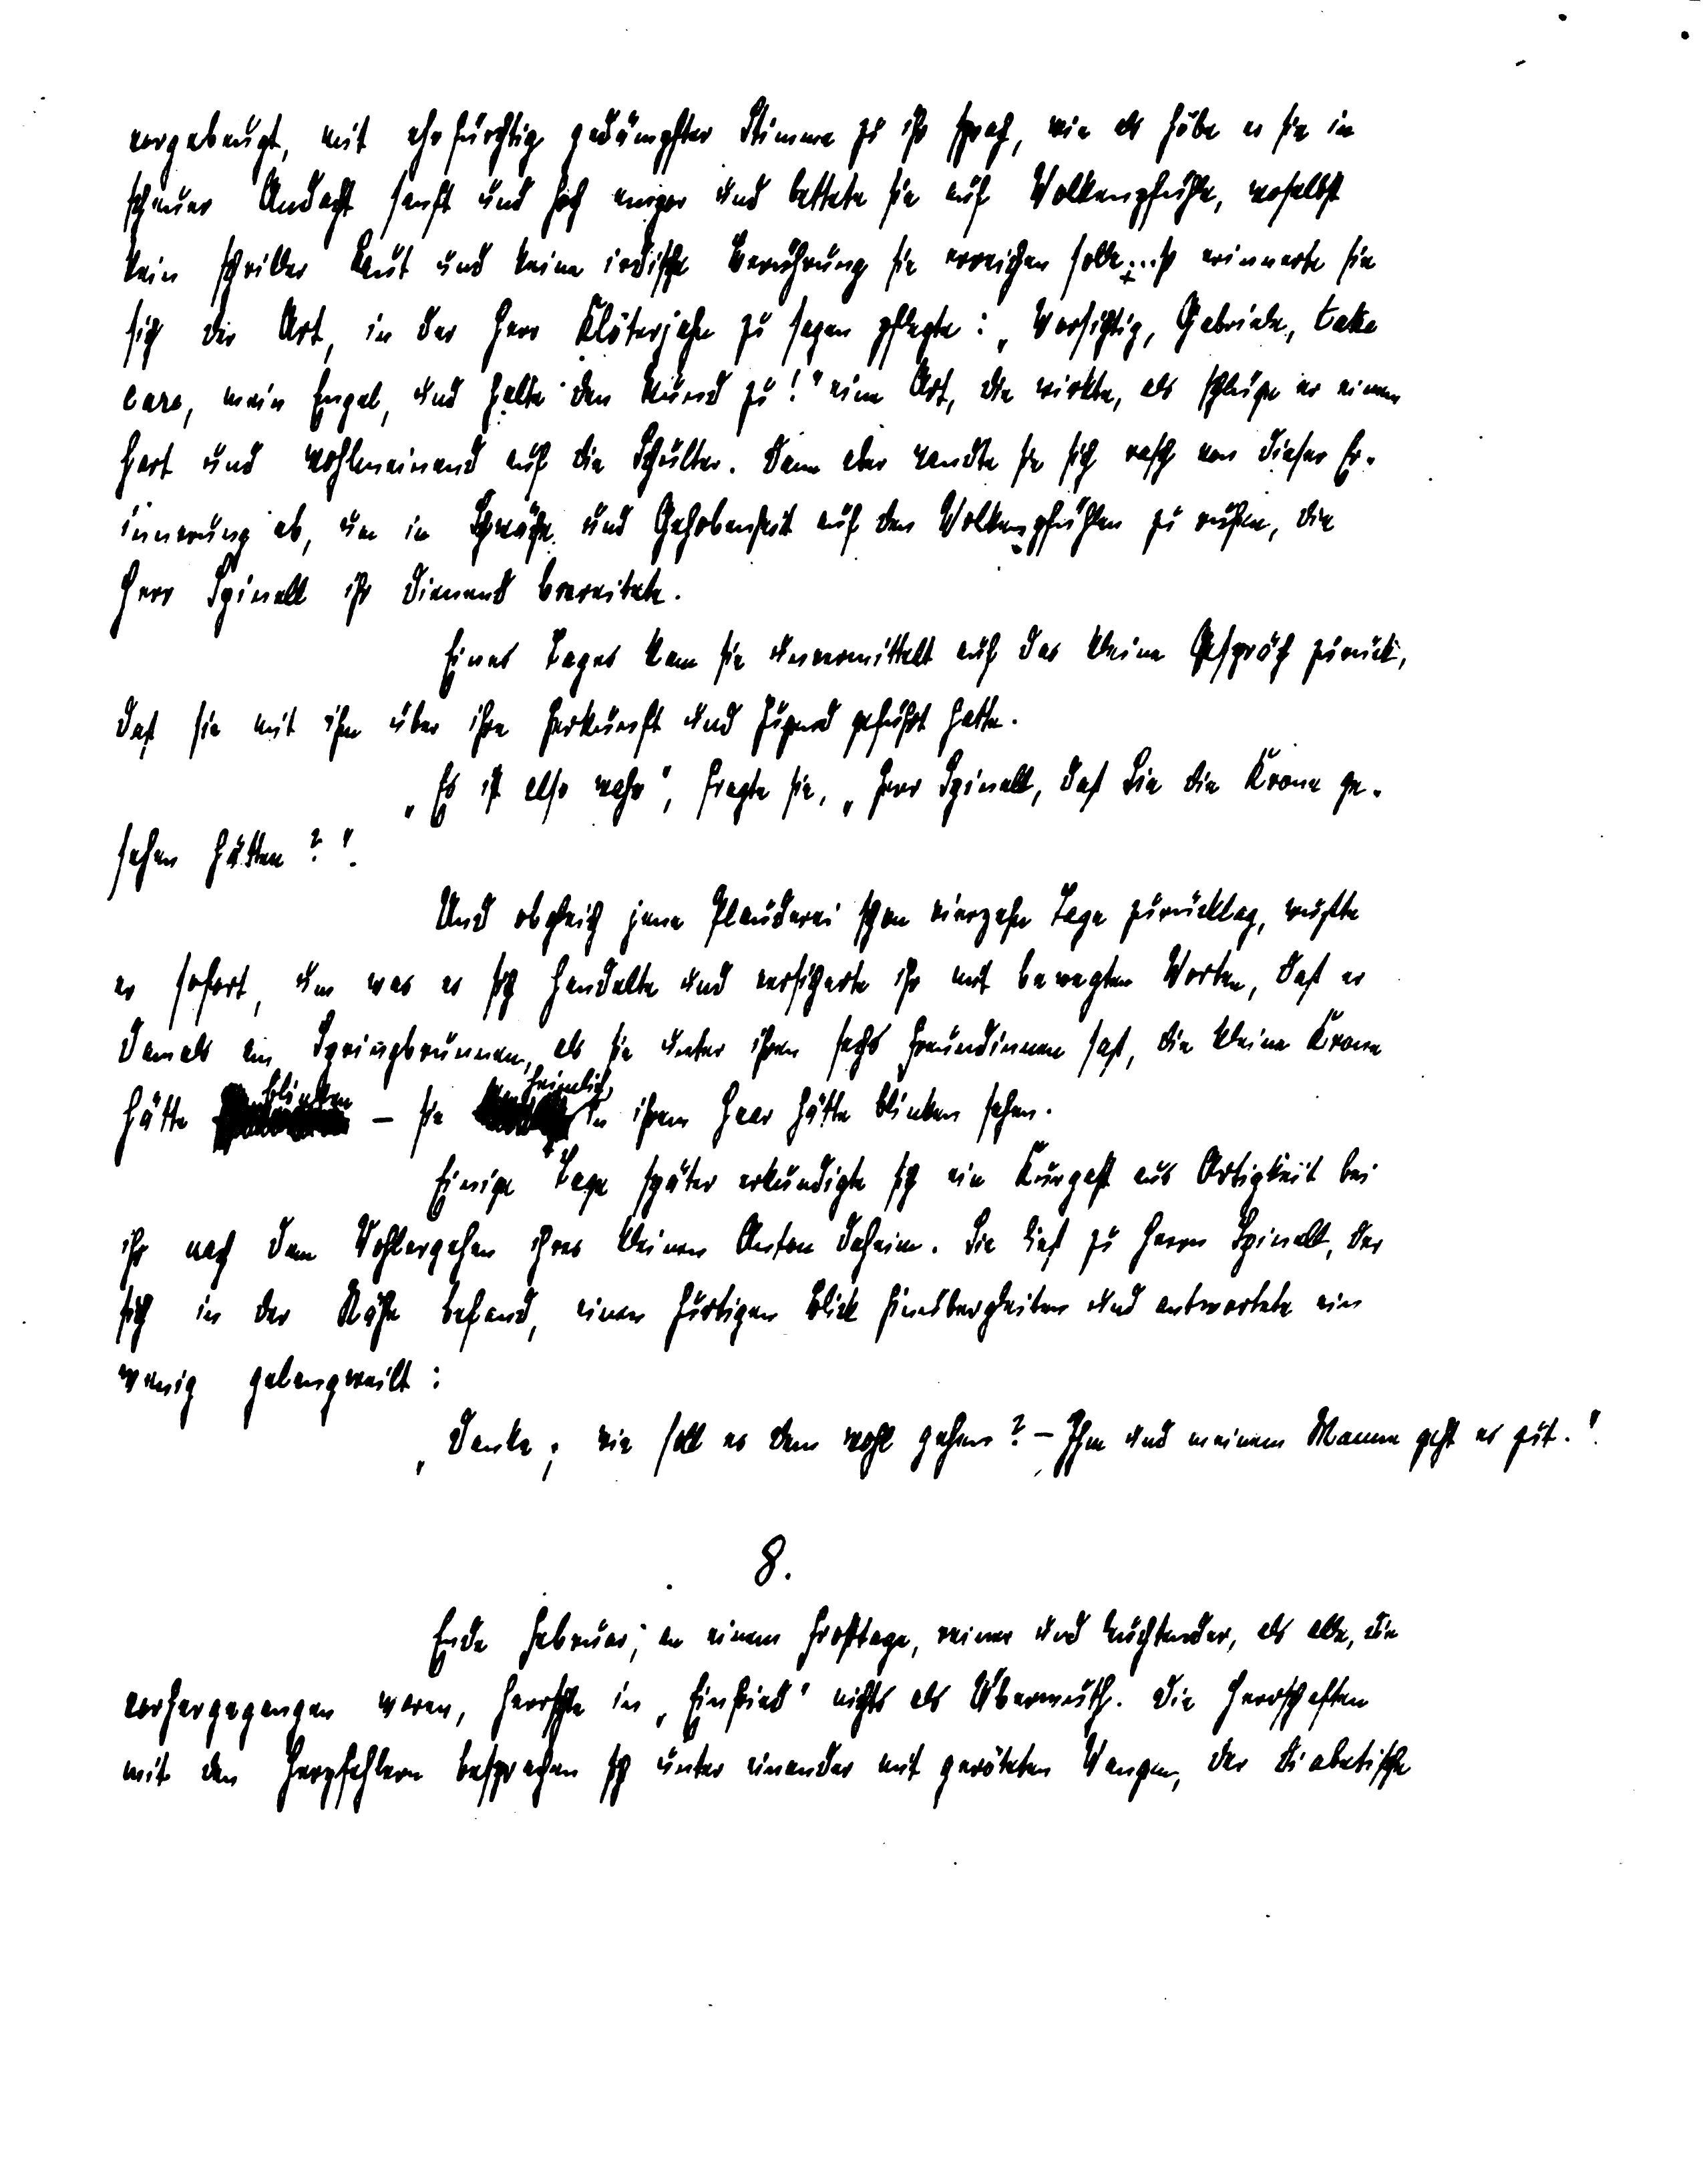 vorgebeugt, mit ehrfürchtig gedämpfter Stimme zu ihr sprach, wie als höbe er sie in
scheuer Andacht sanft und hoch empor und bettete sie auf Wolkenpfühle, woselbst
kein schriller Laut und keine irdische Berührung sie erreichen solle... so erinnerte sie
sich der Art, in der Herr Klöterjahn zu sagen pflegte: „Vorsichtig, Gabriele, take
care, mein Engel, und halte den Mund zu!" eine Art, die wirkte, als schlüge er einem
hart und wohlmeinend auf die Schulter. Dann aber wandte sie sich rasch von dieser Er-
innerung ab, um in Schwäche und Gehobenheit auf den Wolkenpfühlen zu ruhen, die
Herr Spinell ihr dienend bereitete.
Eines Tages kam sie unvermittelt auf das kleine Gespräch zurück,
daß sie mit ihm über ihre Herkunft und Jugend geführt hatte.
„Es ist also wahr", fragte sie, „Herr Spinell, daß Sie die Krone ge-
sehen hätten?".
Und obgleich jene Plauderei schon vierzehn Tage zurücklag, wußte
er sofort, um was es sich handelte und versicherte ihr mit bewegten Worten, daß er
damals am Springbrunnen, als sie unter ihren sechs Freundinnen saß, die kleine Krone
hätte blinken – sie heimlich in ihrem Haar hätte blinken sehen.
Einige Tage später erkundigte sich ein Kurgast aus Artigkeit bei
ihr nach dem Wohlergehen ihres kleinen Anton daheim. Sie ließ zu Herrn Spinell, der
sich in der Nähe befand, einen hurtigen Blick hinübergleiten und antwortete ein
wenig gelangweilt:
„Danke; wie soll es dem wohl gehen? – Ihm und meinem Manne geht es gut.".
8.
Ende Februar, an einem Frosttage, reiner und leuchtender, als alle, die
vorhergegangen waren, herrschte in „Einfried" nichts als Übermuth. Die Herrschaften
mit den Herzfehlern besprachen sich unter einander mit geröteten Wangen, der diabetische